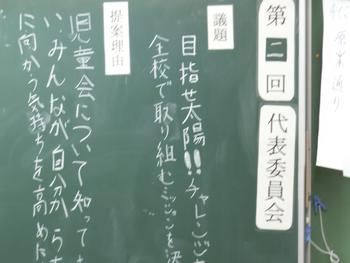 第二回 代表委員会
議題
目指せ太陽!!チャレンジ
全校で取り組むミッションを決
提案理由
児童会について知っても
いみんなが自分から
に向かう気持ちを高めに
原案通り